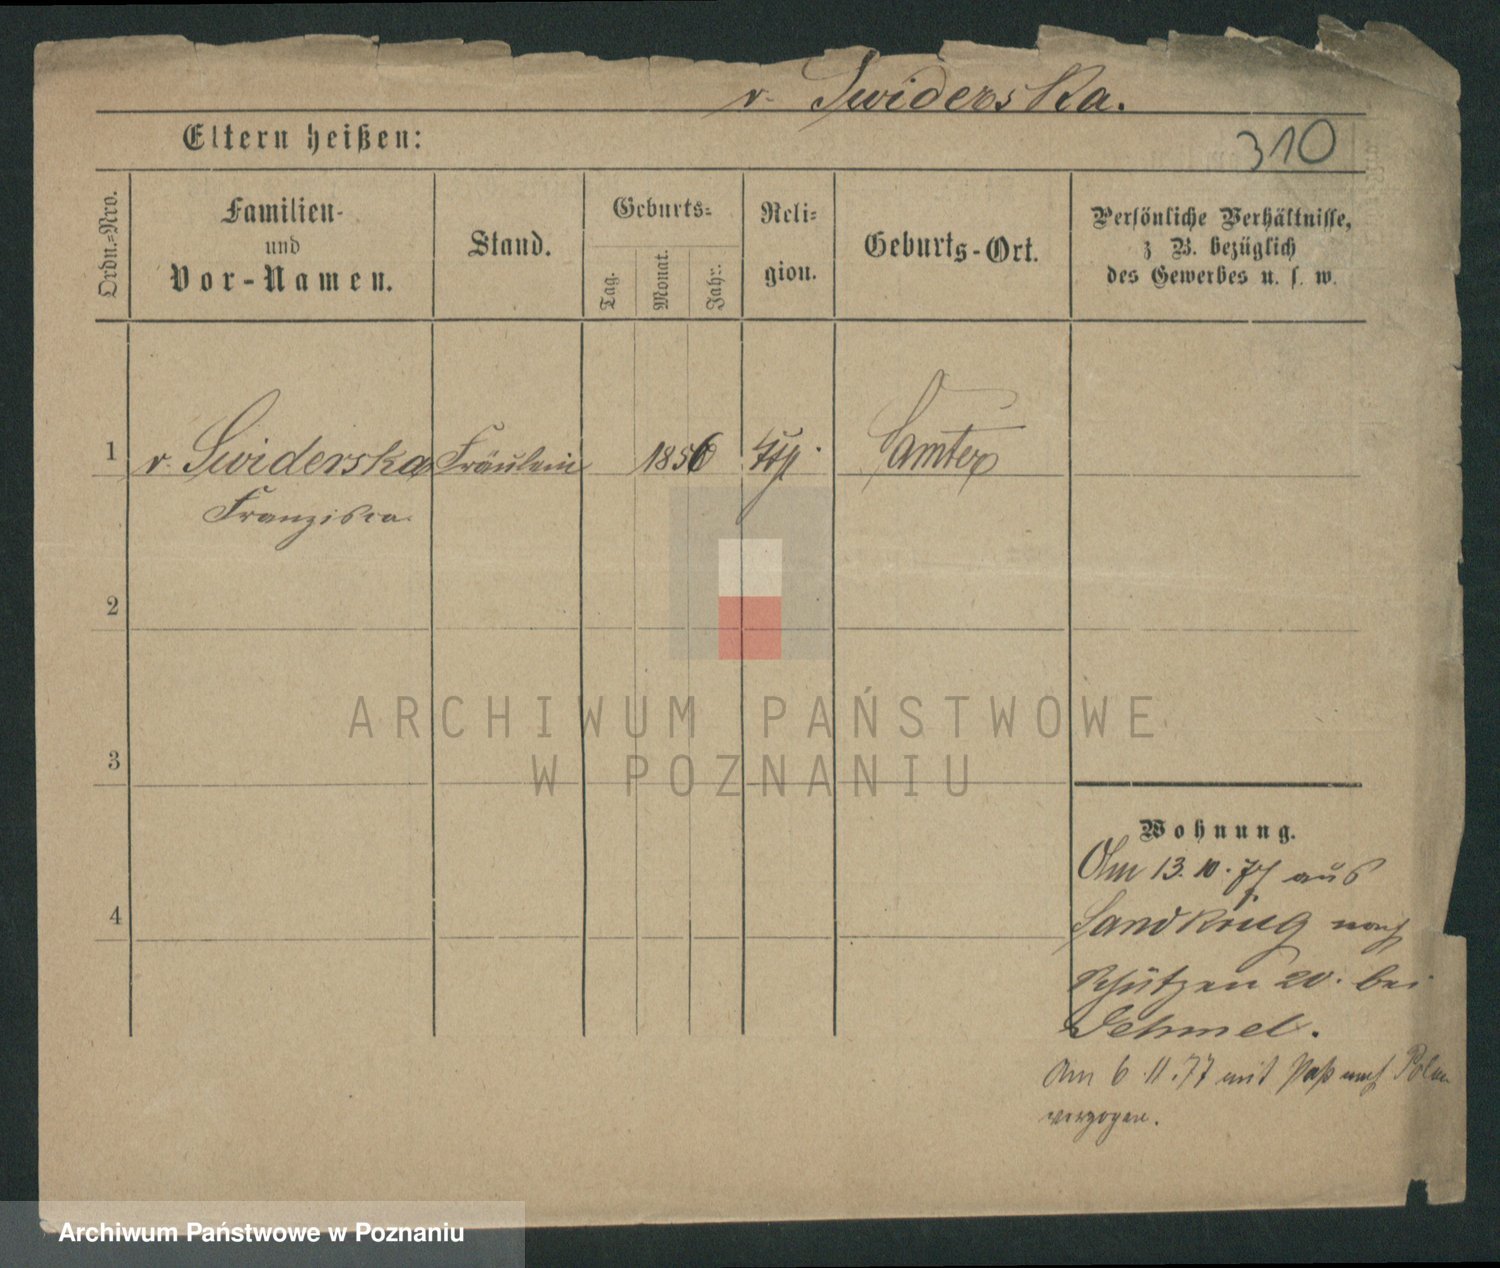 v. Swiderska.
Eltern heißen:
310
Ordn.-Nro.
Familien-
und
Vor-Namen.
Stand.
Geburts-
Tag.
Monat.
Jahr.
Reli-
gion.
Geburts-Ort.
Persönliche Verhältnisse,
z B. bezüglich
des Gewerbes u. s. w.
1 v. Swiderska Fräulein 1856 Samter
Franziska
2
3
4
Wohnung.
Am 13. 10. 77 aus
Sandkrug nach
Schützen 20. bei
Dehmel.
Am 6. 11. 77 mit Paß nach Polen
verzogen.
ARCHIWUM PAŃSTWOWE
W POZNANIU
Archiwum Państwowe w Poznaniu